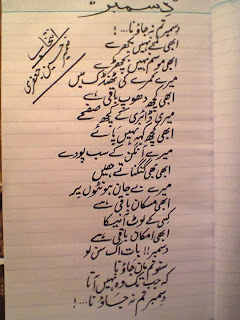 "دسمبر"
انتخاب
دسمبر تم نہ جاؤ نا...!
ابھی لمحے نہیں بکھرے
ابھی موسم نہیں بچھڑے
میرے کمرے کی ٹھنڈک میں
ابھی کچھ دھوپ باقی ہے
میری ڈائری کے کچھ صفحے
ابھی کچھ کہہ نہیں پائے
میرے آنگن کے سب پودے
ابھی بھی گنگناتے ہیں
میرے بے جان ہونٹوں پر
ابھی مسکان باقی ہے
کسی کے لوٹ آنے کا
ابھی امکان باقی ہے
دسمبر!! بات اک سن لو
سنو تم مان جاؤ نا
کہ جب تک وہ نہیں آتا
دسمبر تم نہ جاؤ نا...!